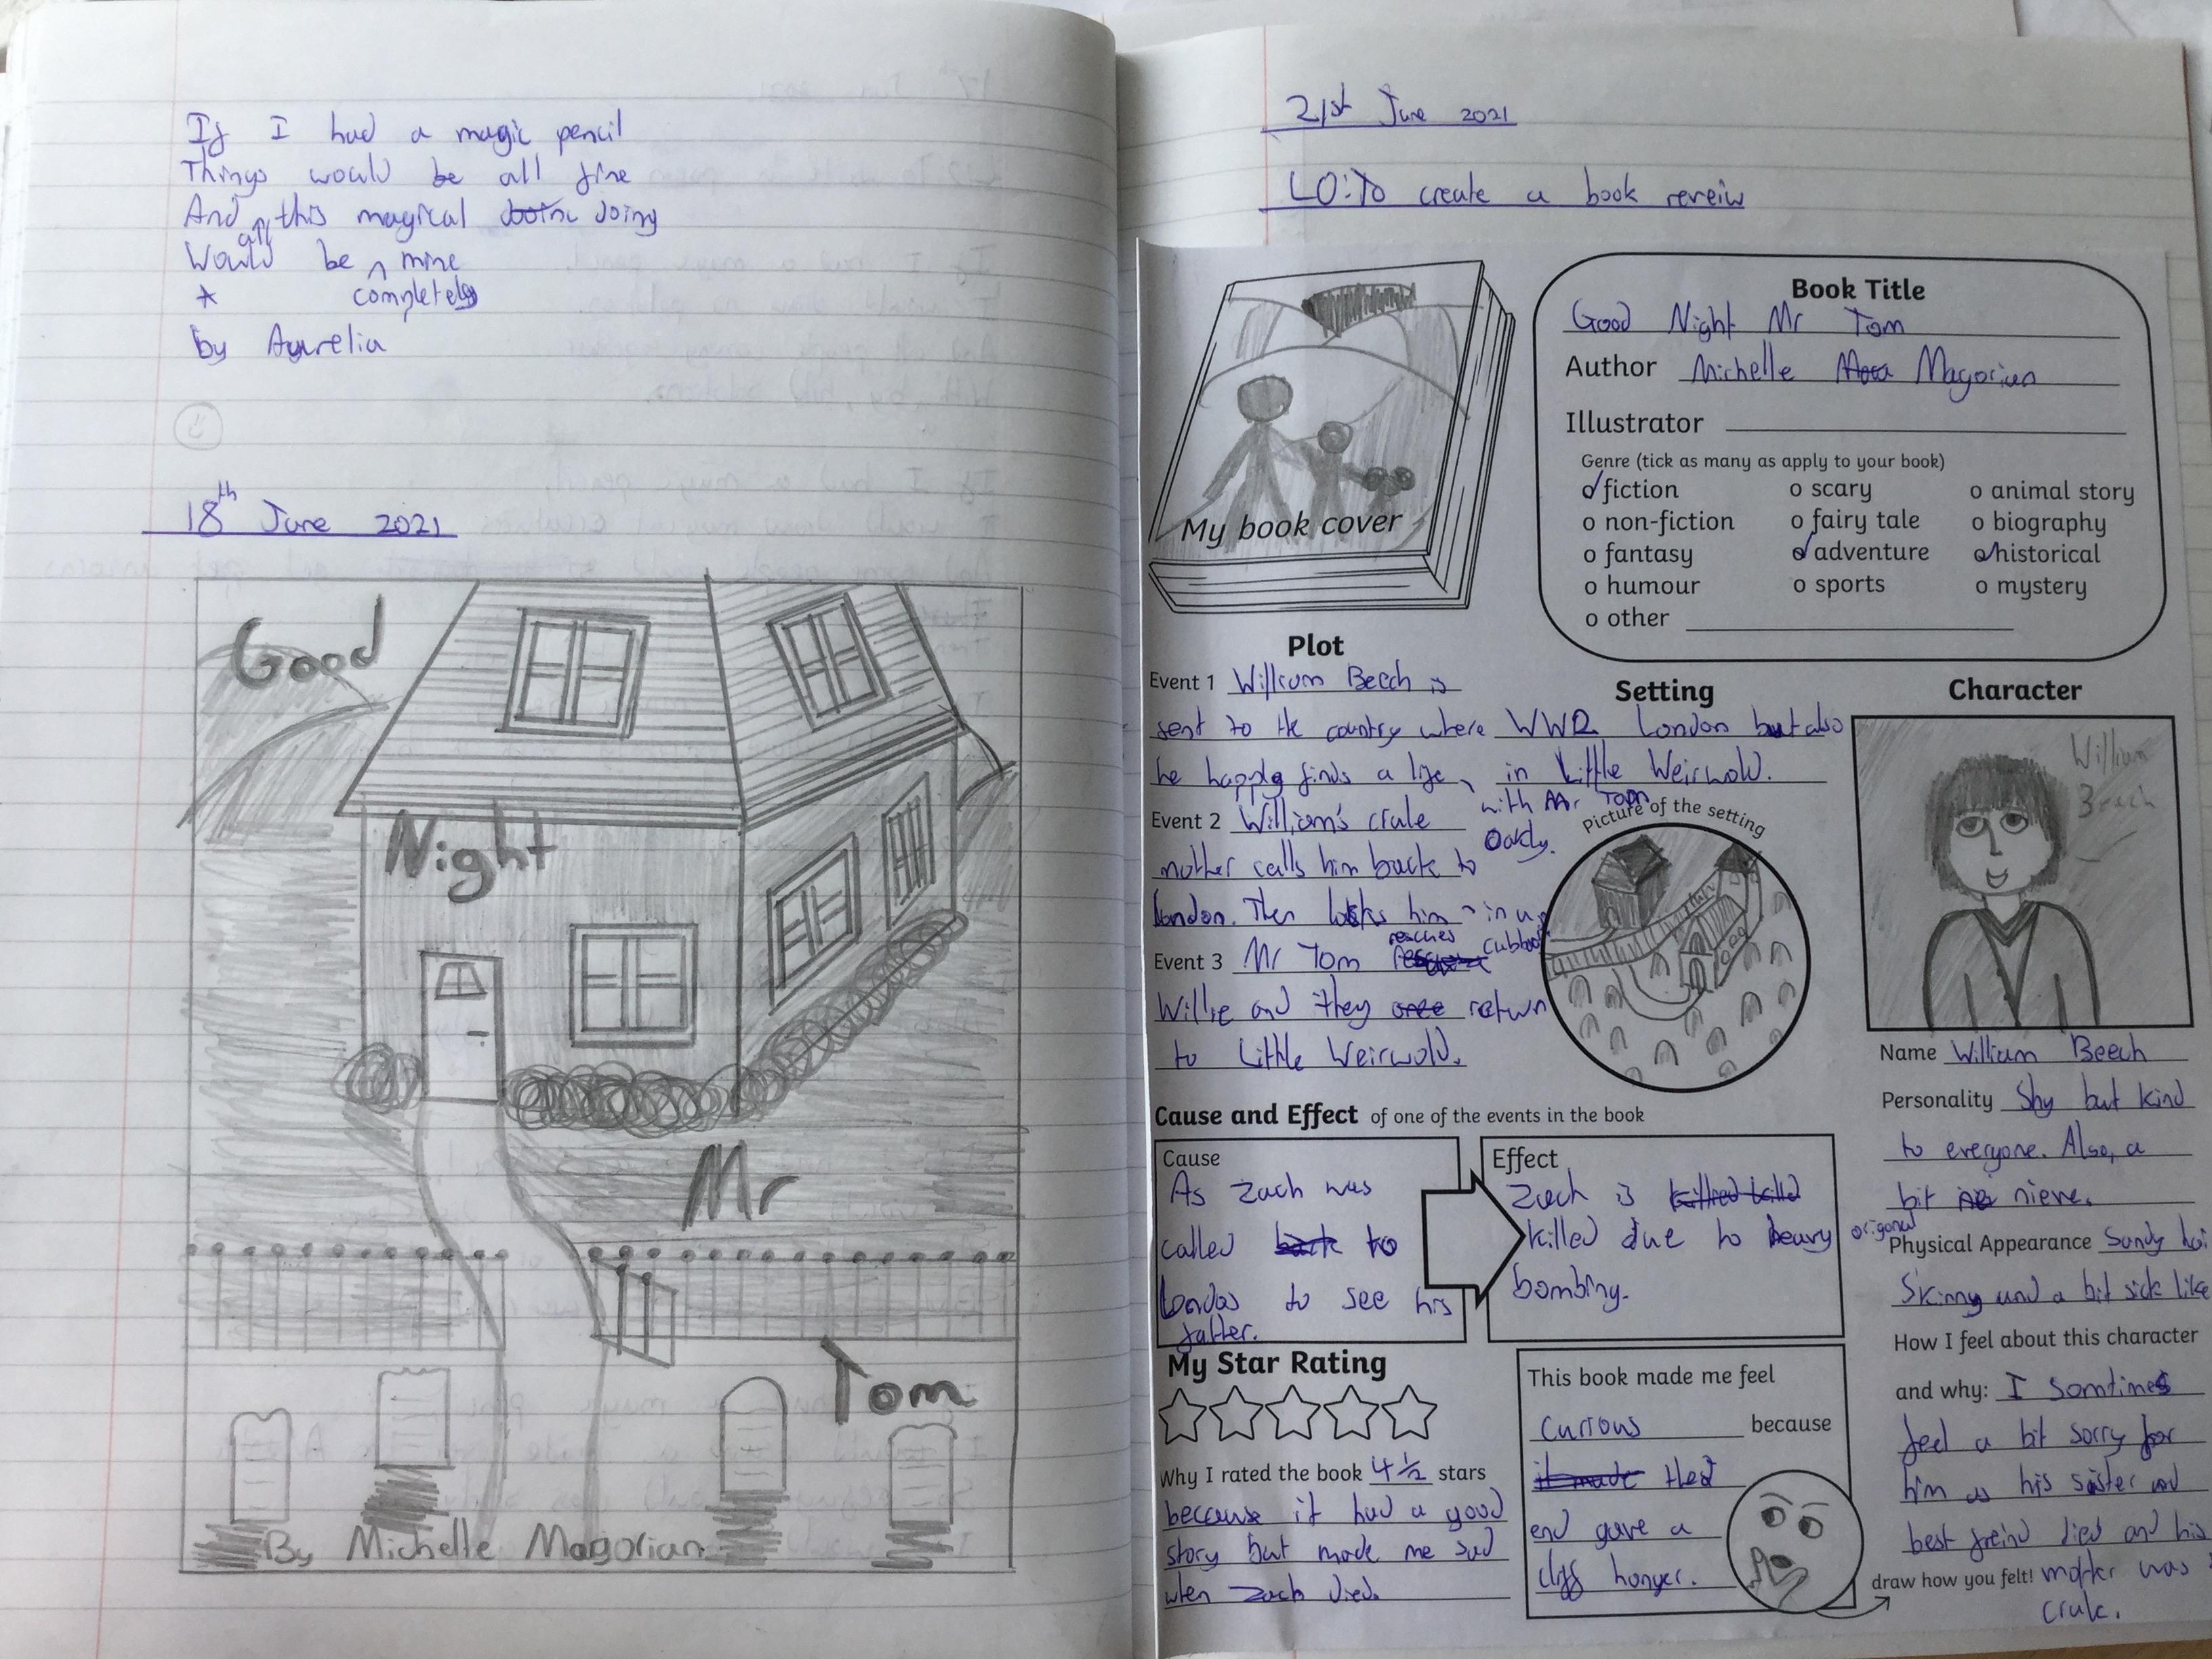 If I had a magic pencil
Things would be all fine
And this magical doing
Would be completely mine
by Aurelia
18th June 2021
Good
Night
Mr
Tom
By Michelle Magorian
21st June 2021
LO: To create a book reveiw
My book cover
Book Title
Good Night Mr Tom
Author Michelle Magorian
Illustrator
Genre (tick as many as apply to your book)
fiction o scary o animal story
o non-fiction o fairy tale o biography
o fantasy adventure historical
o humour o sports o mystery
o other
Plot
Event 1 William Beech is
sent to the country where WW2 London but also
he happly finds a life in Little Weirwold.
with Mr Tom
Oakly.
Event 2 William's crule
mother calls him back to
London. Then locks him in a
cubboard
Event 3 Mr Tom reaches
Willie and they return
to Little Weirwold.
Setting
Picture of the setting
Character
William
Beech
Name William Beech
Personality Shy but kind
to everyone. Also, a
bit nieve.
Physical Appearance Sandy hai
Skinny and a bit sick like
origonal
How I feel about this character
and why: I somtimes
feel a bit sorry for
him as his sister and
best freind died and his
mother was
crule.
Cause and Effect of one of the events in the book
Cause
As Zach was
called to
London to see his
father.
Effect
Zach is
killed due to heavy
bombing.
My Star Rating
Why I rated the book 4 1/2 stars
because it had a good
story but made me sad
when Zach died.
This book made me feel
Curious because
the
end gave a
cliff hanger.
draw how you felt!